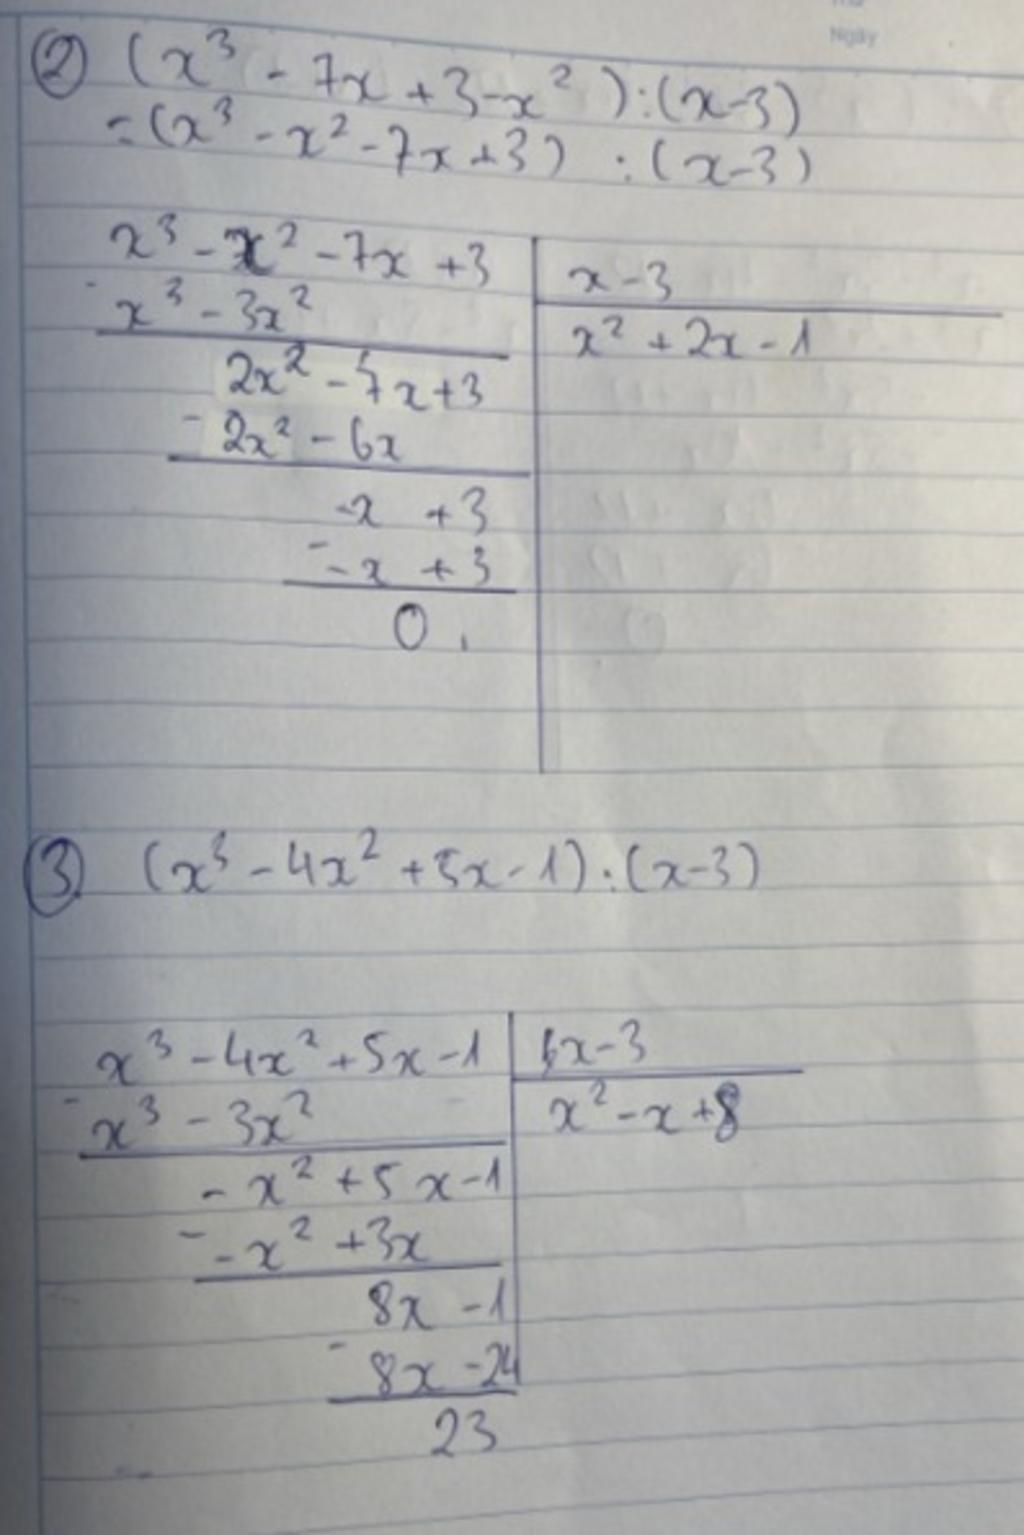 Ngày
② (x³ - 7x + 3 - x²) : (x-3)
= (x³ - x² - 7x + 3) : (x-3)
x³ - x² - 7x + 3 | x - 3
- x³ - 3x² | x² + 2x - 1
2x² - 7x + 3
- 2x² - 6x
-x + 3
- -x + 3
0.
③. (x³ - 4x² + 5x - 1) : (x-3)
x³ - 4x² + 5x - 1 | x - 3
- x³ - 3x² | x² - x + 8
- x² + 5x - 1
- - x² + 3x
8x - 1
- 8x - 24
23